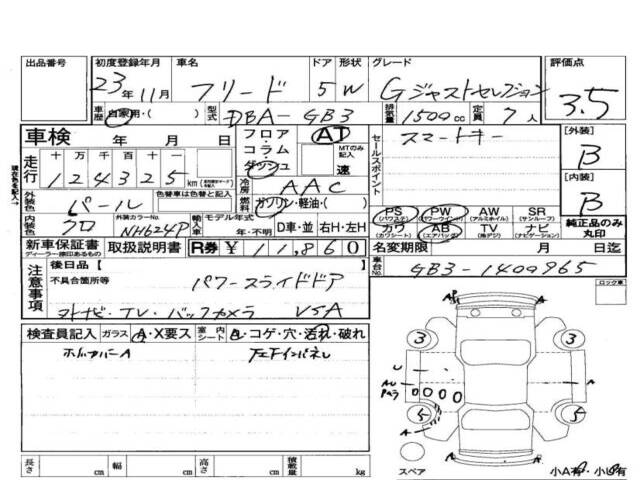 出品番号
初度登録年月
23年11月
車名
フリード
ドア 形状
5 W
グレード
Gジャストセレクション
評価点
3.5
車歴 自家用・( )
型式 DBA-GB3
排気量 1500cc
定員 7人
車検 年 月 日
フロア・コラム・ダッシュ
AT
MTのみ記入
速
セールスポイント
スマートキー
[外装]
B
[内装]
B
純正品のみ丸印
走行
十 万 千 百 十 一
124325 km
冷房 AAC
燃料 ガソリン・軽油・( )
外装色 パール
色替車は色替と記入
内装色 クロ
外装カラーNo. NH624P
輸入車 モデル年式 年・不明
D車・並 右H・左H
PS (パワステ) PW (パワーウインド) AW (アルミホイル) SR (サンルーフ)
カワ (カワシート) AB (エアバッグ) TV (地デジ) ナビ (ナビゲーション)
新車保証書
ディーラー捺印あるもの
取扱説明書
R券 ¥11,860
名変期限 月 日迄
車台No. GB3-1409965
注意事項
後日品 [ ]
不具合箇所等
パワースライドドア
社外ナビ・TV・バックカメラ VSA
ロック車
検査員記入 ガラス A・X要ス 室内シート コゲ・穴・汚れ・破れ
3 3
5 5
U
A
スペア
小A有・小U有
長さ cm 幅 cm 高さ cm 積載量 kg